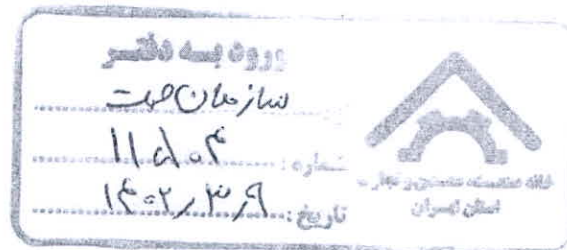 ورود به دفتر
سازمان صمت
شماره :
تاریخ : ۱۴۰۲٫۳٫۹
خانه صنعت، معدن و تجارت
استان تهران